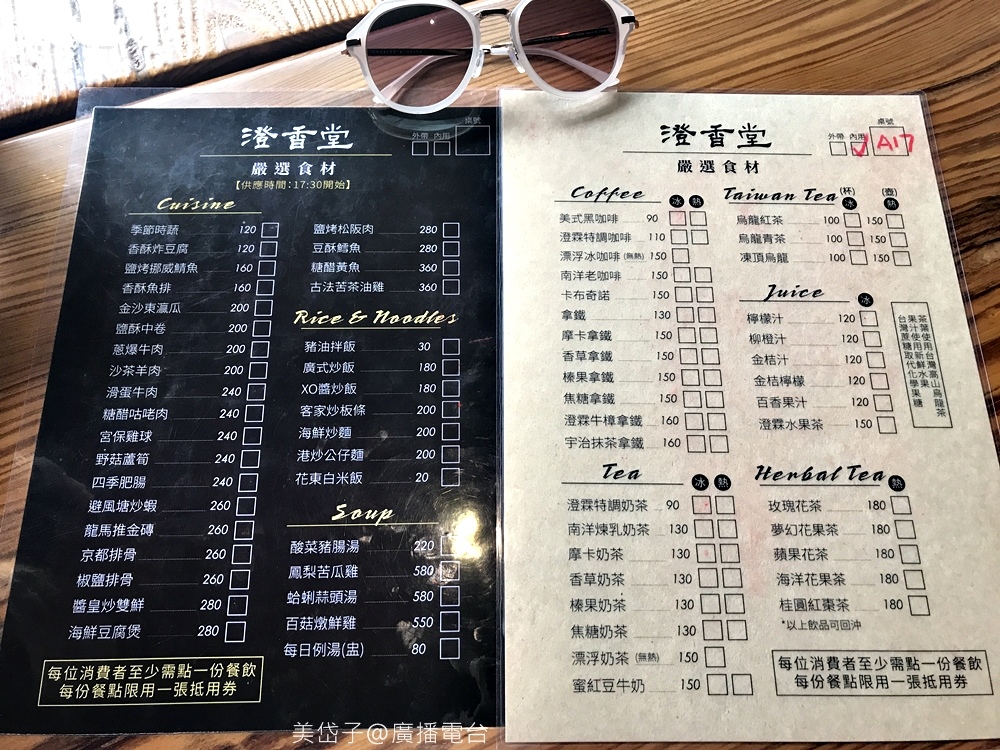 澄香堂
外帶 內用
桌號
嚴選食材
【供應時間:17:30開始】
Cuisine
季節時蔬 120
香酥炸豆腐 120
鹽烤挪威鯖魚 160
香酥魚排 160
金沙東瀛瓜 200
鹽酥中卷 200
蔥爆牛肉 200
沙茶羊肉 200
滑蛋牛肉 240
糖醋咕咾肉 240
宮保雞球 240
野菇蘆筍 240
四季肥腸 240
避風塘炒蝦 260
龍馬推金磚 260
京都排骨 260
椒鹽排骨 260
醬皇炒雙鮮 280
海鮮豆腐煲 280
鹽烤松阪肉 280
豆酥鱈魚 280
糖醋黃魚 360
古法苦茶油雞 360
Rice & Noodles
豬油拌飯 30
廣式炒飯 180
XO醬炒飯 180
客家炒板條 200
海鮮炒麵 200
港炒公仔麵 200
花東白米飯 20
Soup
酸菜豬腸湯 220
鳳梨苦瓜雞 580
蛤蜊蒜頭湯 580
百菇燉鮮雞 550
每日例湯(盅) 80
每位消費者至少需點一份餐飲
每份餐點限用一張抵用券
澄香堂
外帶 內用
桌號
A17
嚴選食材
Coffee 冰 熱
美式黑咖啡 90
澄霖特調咖啡 110
漂浮冰咖啡(無熱) 150
南洋老咖啡 150
卡布奇諾 150
拿鐵 130
摩卡拿鐵 150
香草拿鐵 150
榛果拿鐵 150
焦糖拿鐵 150
澄霖牛樟拿鐵 160
宇治抹茶拿鐵 160
Tea 冰 熱
澄霖特調奶茶 90
南洋煉乳奶茶 130
摩卡奶茶 130
香草奶茶 130
榛果奶茶 130
焦糖奶茶 130
漂浮奶茶(無熱) 150
蜜紅豆牛奶 150
Taiwan Tea (杯) 冰 (壺) 熱
烏龍紅茶 100 150
烏龍青茶 100 150
凍頂烏龍 100 150
Juice 冰
檸檬汁 120
柳橙汁 120
金桔汁 120
金桔檸檬 120
百香果汁 120
澄霖水果茶 150
茶葉使用台灣高山烏龍茶
果汁使用新鮮水果
台灣蔗糖取代化學果糖
Herbal Tea 熱
玫瑰花茶 180
夢幻花果茶 180
蘋果花茶 180
海洋花果茶 180
桂圓紅棗茶 180
*以上飲品可回沖
每位消費者至少需點一份餐飲
每份餐點限用一張抵用券
美岱子@廣播電台